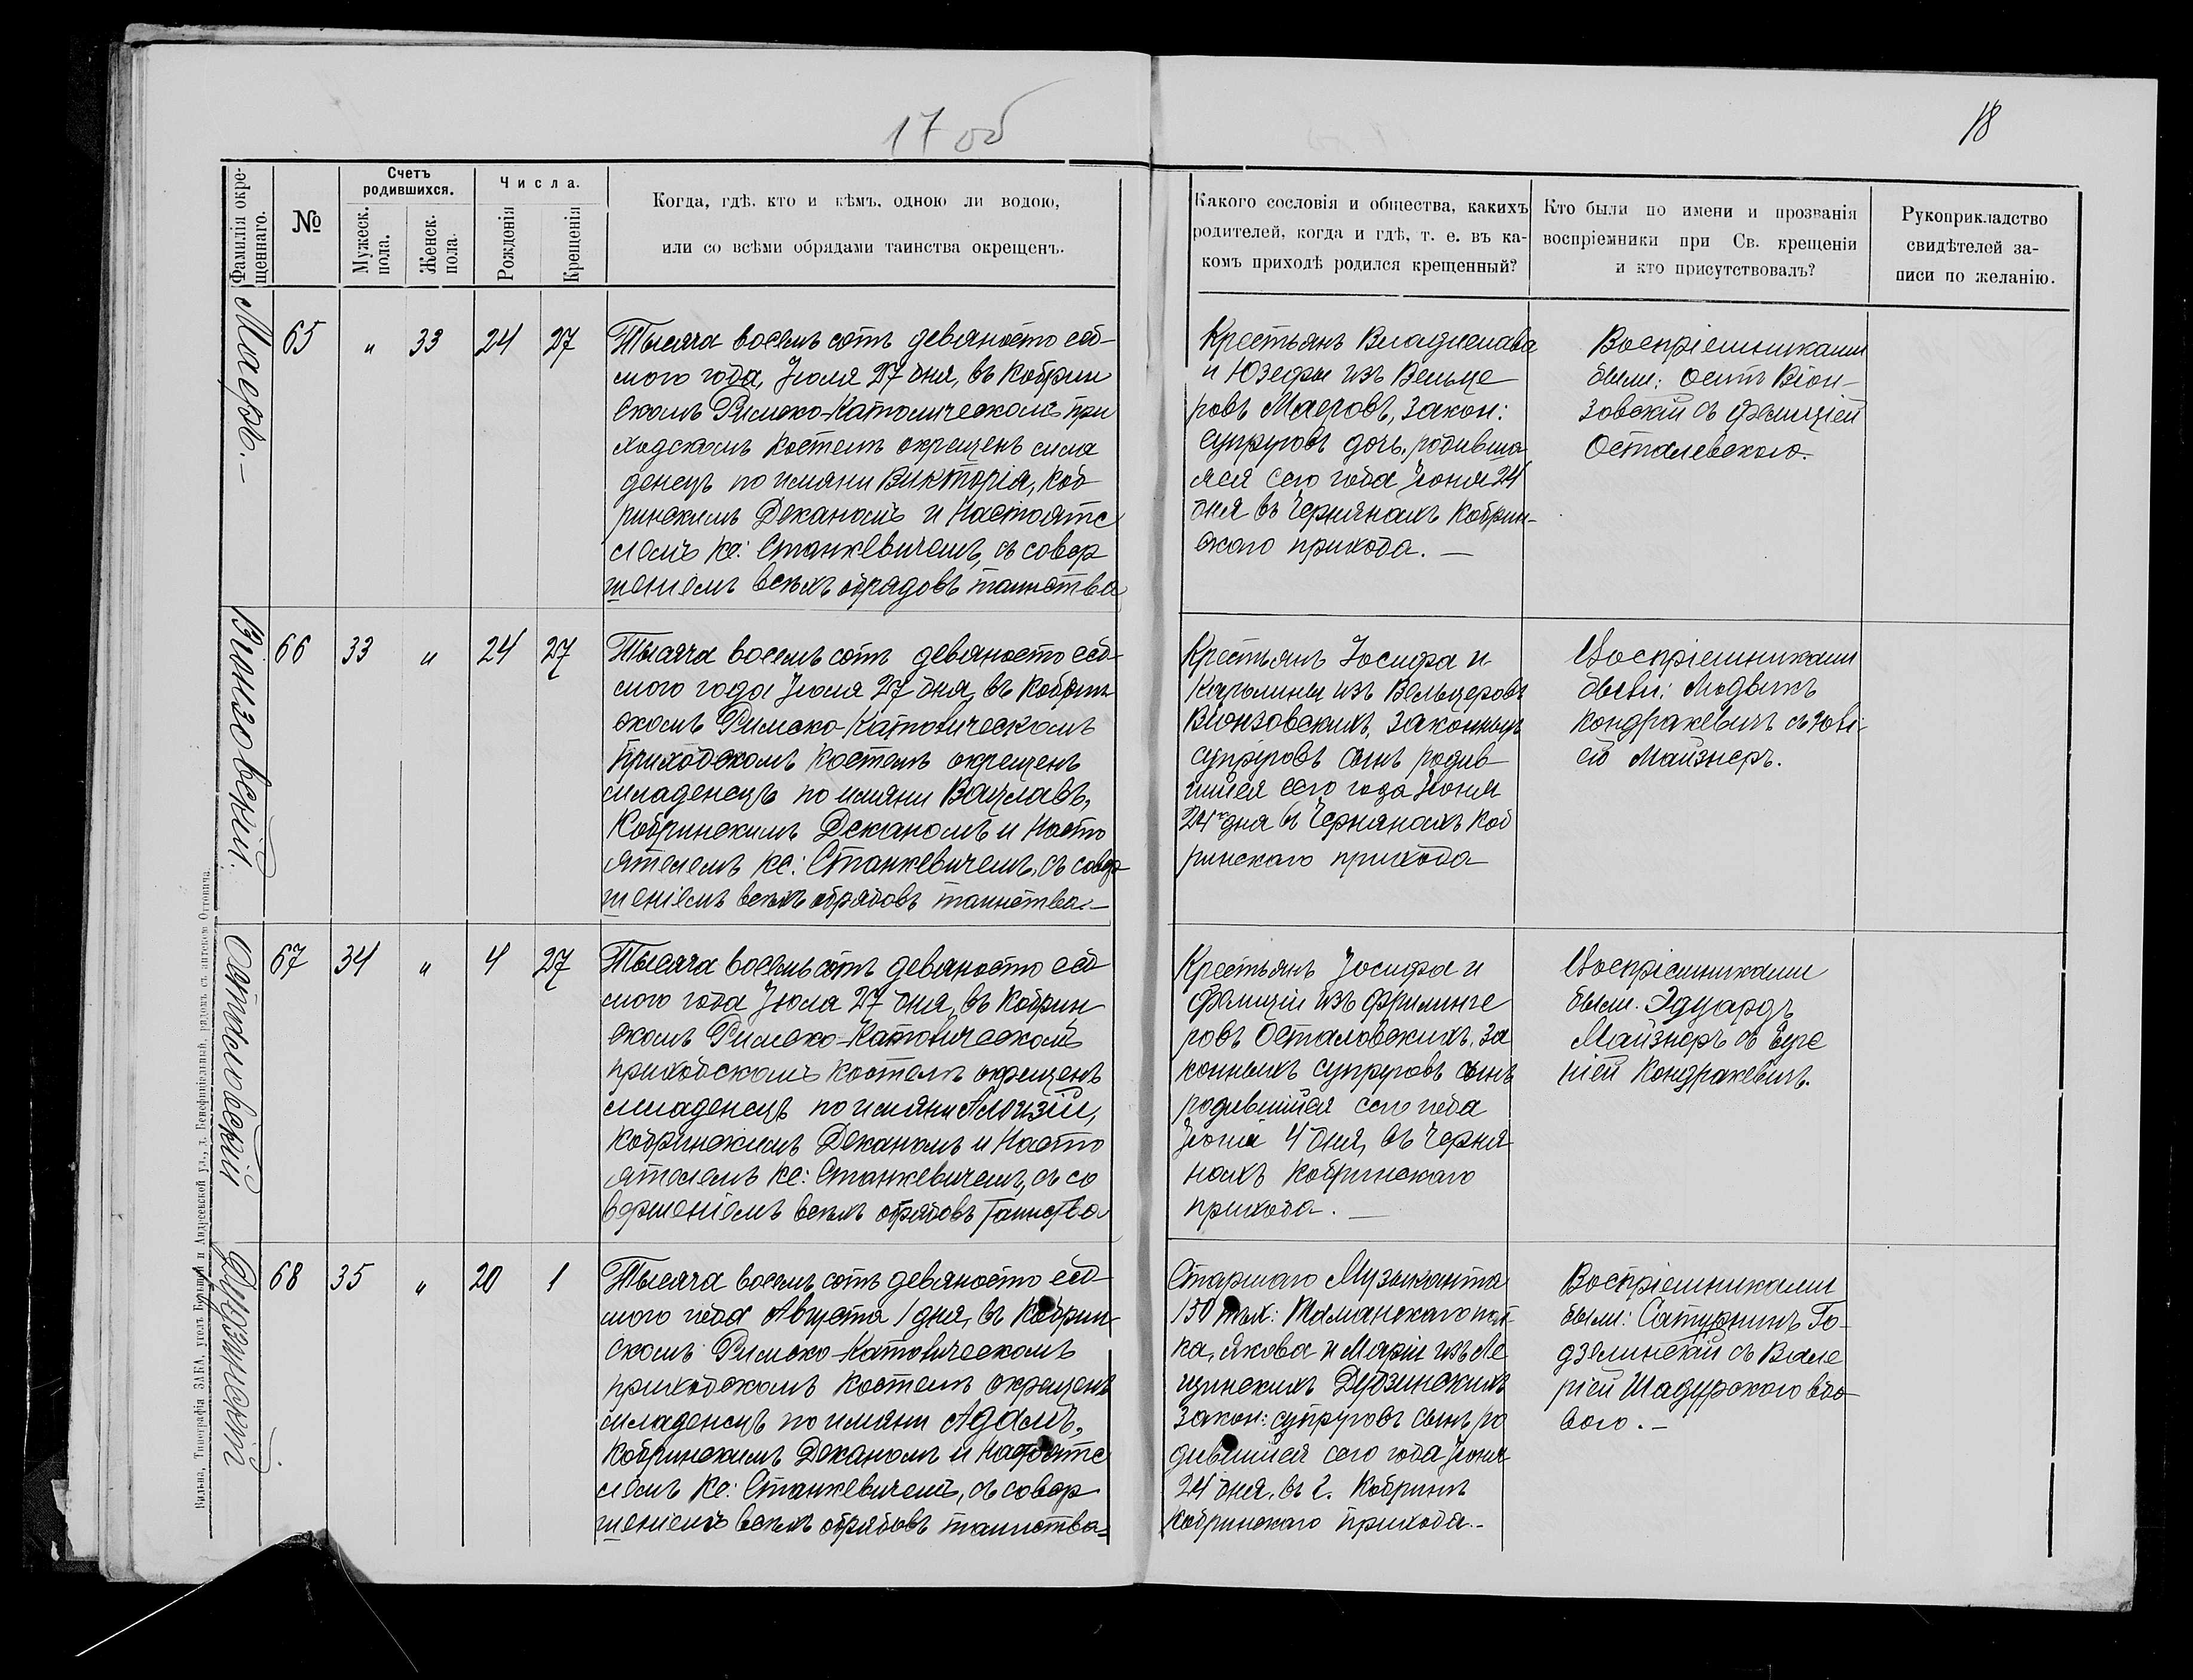 17 об
18
Фамилія окре-
щеннаго.
№
Счетъ
родившихся.
Мужеск.
пола.
Женск.
пола.
Числа.
Рожденія
Крещенія
Когда, гдѣ, кто и кѣмъ, одною ли водою,
или со всѣми обрядами таинства окрещенъ.
Какого сословія и общества, какихъ
родителей, когда и гдѣ, т. е. въ ка-
комъ приходѣ родился крещенный?
Кто были по имени и прозванія
воспріемники при Св. крещеніи
и кто присутствовалъ?
Рукоприкладство
свидѣтелей за-
писи по желанію.
Маеръ.—
65 „ 33 24 27
Тысяча восемь сотъ девяносто сед-
мого года, Іюля 27 дня, въ Кобрин
скомъ Римско-Католическомъ при
ходскомъ костелѣ окрещенъ мла
денецъ по имяни Викторія, Коб
ринскимъ Деканомъ и Настояте
лемъ Кс: Станкевичемъ, съ совер
шеніемъ всѣхъ обрядовъ таинства
Крестьянъ Владислава
и Юзефы изъ Вельце
ровъ Маеровъ, закон:
супруговъ дочь, родивша
яся сего года Іюня 24
дня въ Чернянахъ Кобрин-
скаго прихода.—
Воспріемниками
были: Осипъ Віон-
зовскій съ Фелиціей
Осталевскою.
Віонзовскій.
66 33 „ 24 27
Тысяча восемь сотъ девяносто сед-
мого года Іюля 27 дня, въ Кобрин
скомъ Римско-Католическомъ
приходскомъ костелѣ окрещенъ
младенецъ по имяни Вацлавъ,
Кобринскимъ Деканомъ и Насто
ятелемъ Кс: Станкевичемъ, съ совер
шеніемъ всѣхъ обрядовъ таинства.—
Крестьянъ Іосифа и
Каролины изъ Вельцеровъ
Віонзовскихъ, законныхъ
супруговъ сынъ родив
шійся сего года Іюня
24 дня въ Чернянахъ Коб
ринскаго прихода
Воспріемниками
были: Людвикъ
Кондракевичъ съ Юлі-
ей Майзнеръ.
Осталовскій
67 34 „ 4 27
Тысяча восемь сотъ девяносто сед
мого года Іюля 27 дня, въ Кобрин
скомъ Римско-Католическомъ
приходскомъ костелѣ окрещенъ
младенецъ по имяни Алоизій,
Кобринскимъ Деканомъ и Насто
ятелемъ Кс: Станкевичемъ, съ со
вершеніемъ всѣхъ обрядовъ таинства
Крестьянъ Іосифа и
Фелиціи изъ Фрилинге
ровъ Осталовскихъ, за
конныхъ супруговъ сынъ
родившійся сего года
Іюня 4 дня, въ Черня
нахъ Кобринскаго
прихода.—
Воспріемниками
были. Эдуардъ
Майзнеръ съ Евге
ніей Кондракевичъ.
Дудзинскій
68 35 „ 20 1
Тысяча восемь сотъ девяносто сед
мого года Августа 1 дня, въ Кобрин-
скомъ Римско-Католическомъ
приходскомъ костелѣ окрещенъ
младенецъ по имяни Адамъ,
Кобринскимъ Деканомъ и Настояте
лемъ Кс: Станкевичемъ, съ совер
шеніемъ всѣхъ обрядовъ таинства=
Старшаго Музыканта
150 пѣх: Таманскаго пол-
ка, Якова и Маріи изъ Ле
щинскихъ Дудзинскихъ
закон: супруговъ сынъ ро
дившійся сего года Іюня
24 дня, въ г. Кобринѣ
Кобринскаго прихода.—
Воспріемниками
были: Сатурнинъ Го-
дзелинскій съ Вале
ріей Шадурскою вдо-
вою.—
Вильна, Типографія ЗАКА, уголъ Большой и Андреевской ул., д. Бенефиціальный, рядомъ съ аптекою Оттовича.